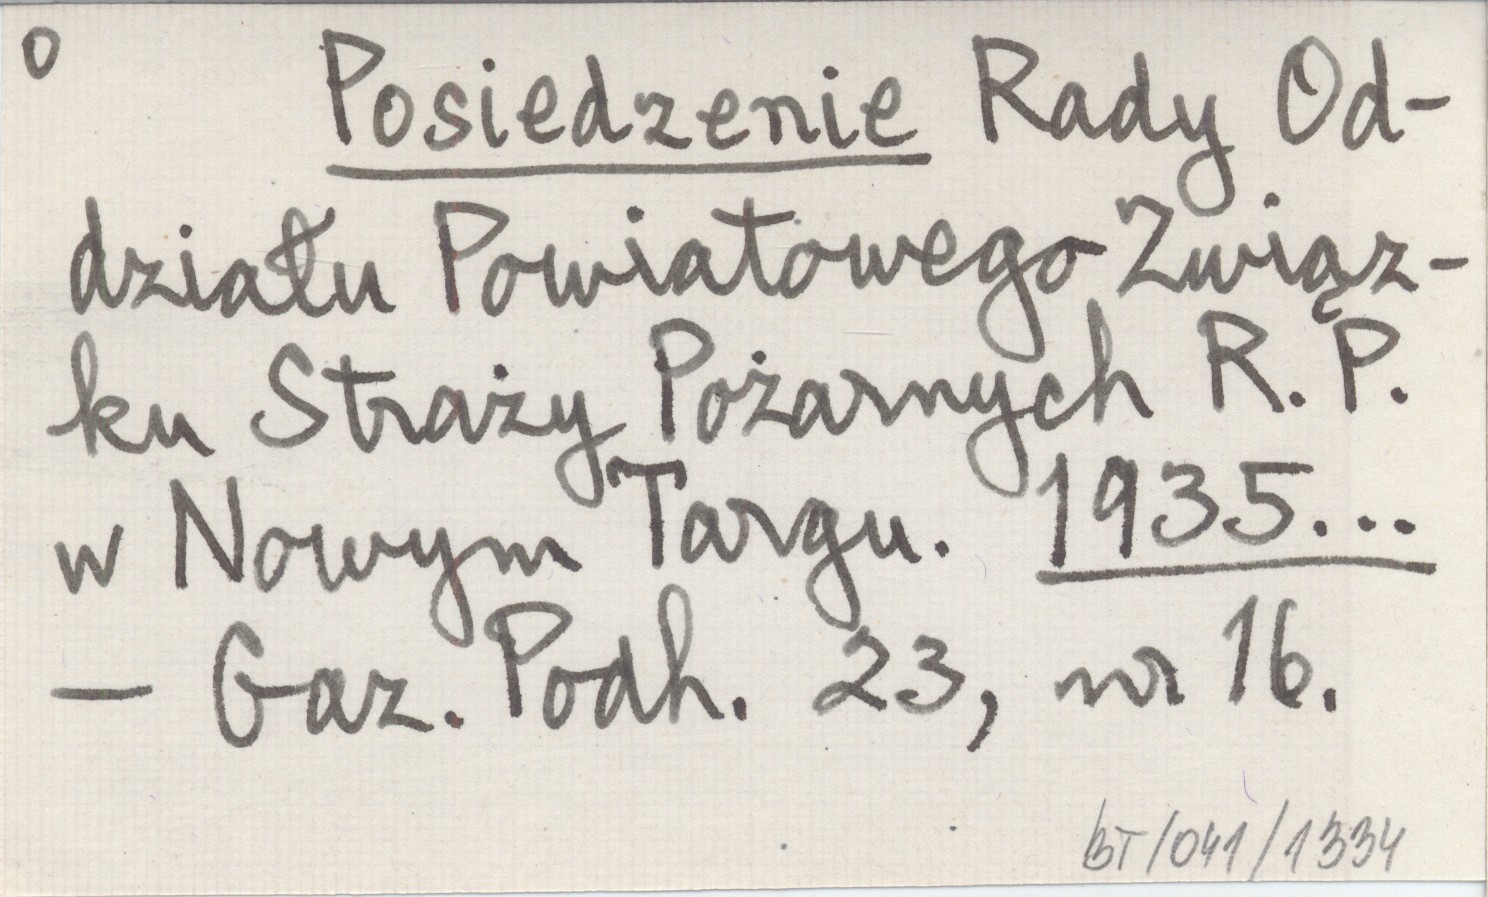 o Posiedzenie Rady Od-
działu Powiatowego Związ-
ku Straży Pożarnych R. P.
w Nowym Targu. 1935...
— Gaz. Podh. 23, nr 16.
BT/041/1334